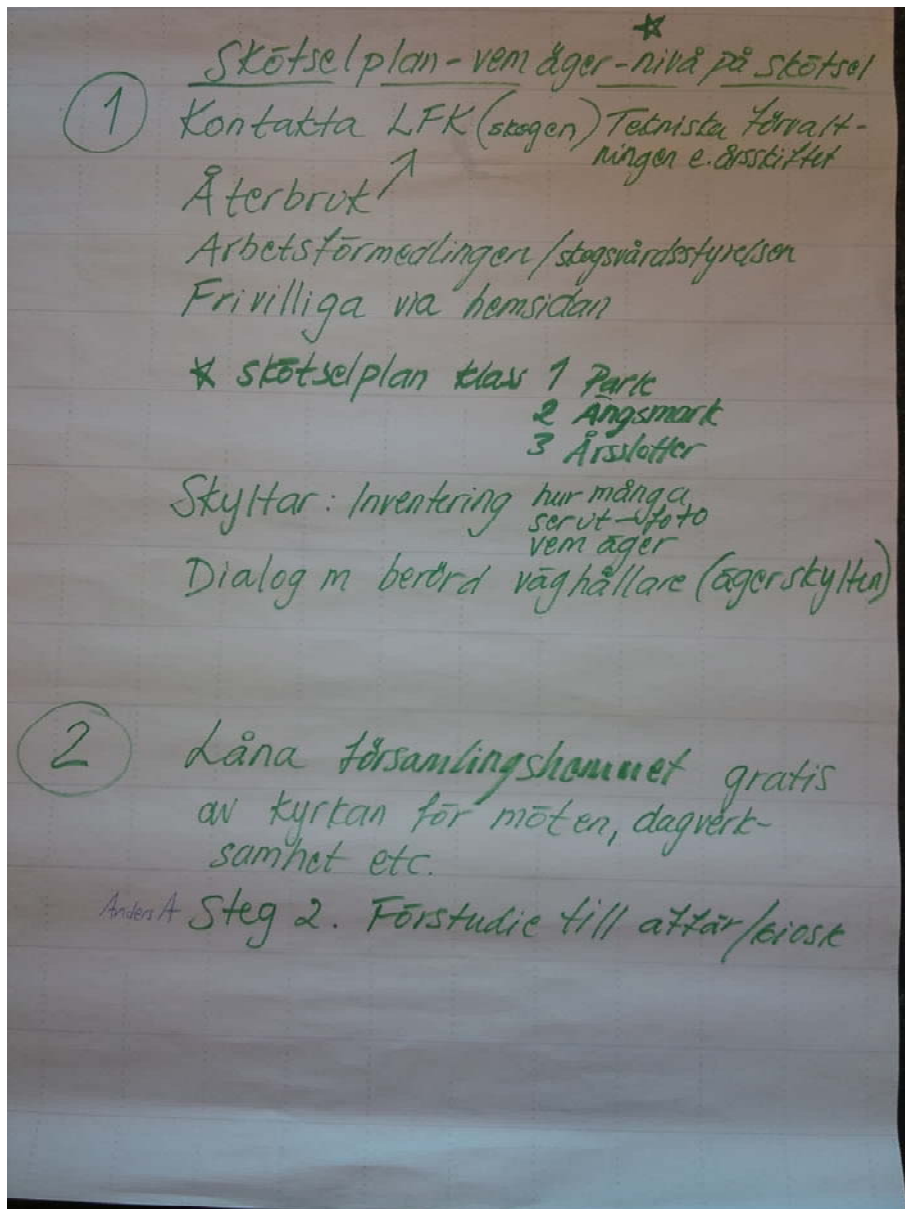 Skötselplan - vem äger - nivå på skötsel
1 Kontakta LFK (skogen) Tekniska förvalt-
ningen e. årsskiftet
Återbruk
Arbetsförmedlingen / skogsvårdsstyrelsen
Frivilliga via hemsidan
skötselplan klass 1 Park
2 Ängsmark
3 Årsslotter
Skyltar: Inventering hur många
ser ut → foto
vem äger
Dialog m berörd väghållare (äger skylten)
2 Låna församlingshemmet gratis
av kyrkan för möten, dagverk-
samhet etc.
Anders A Steg 2. Förstudie till affär/kiosk